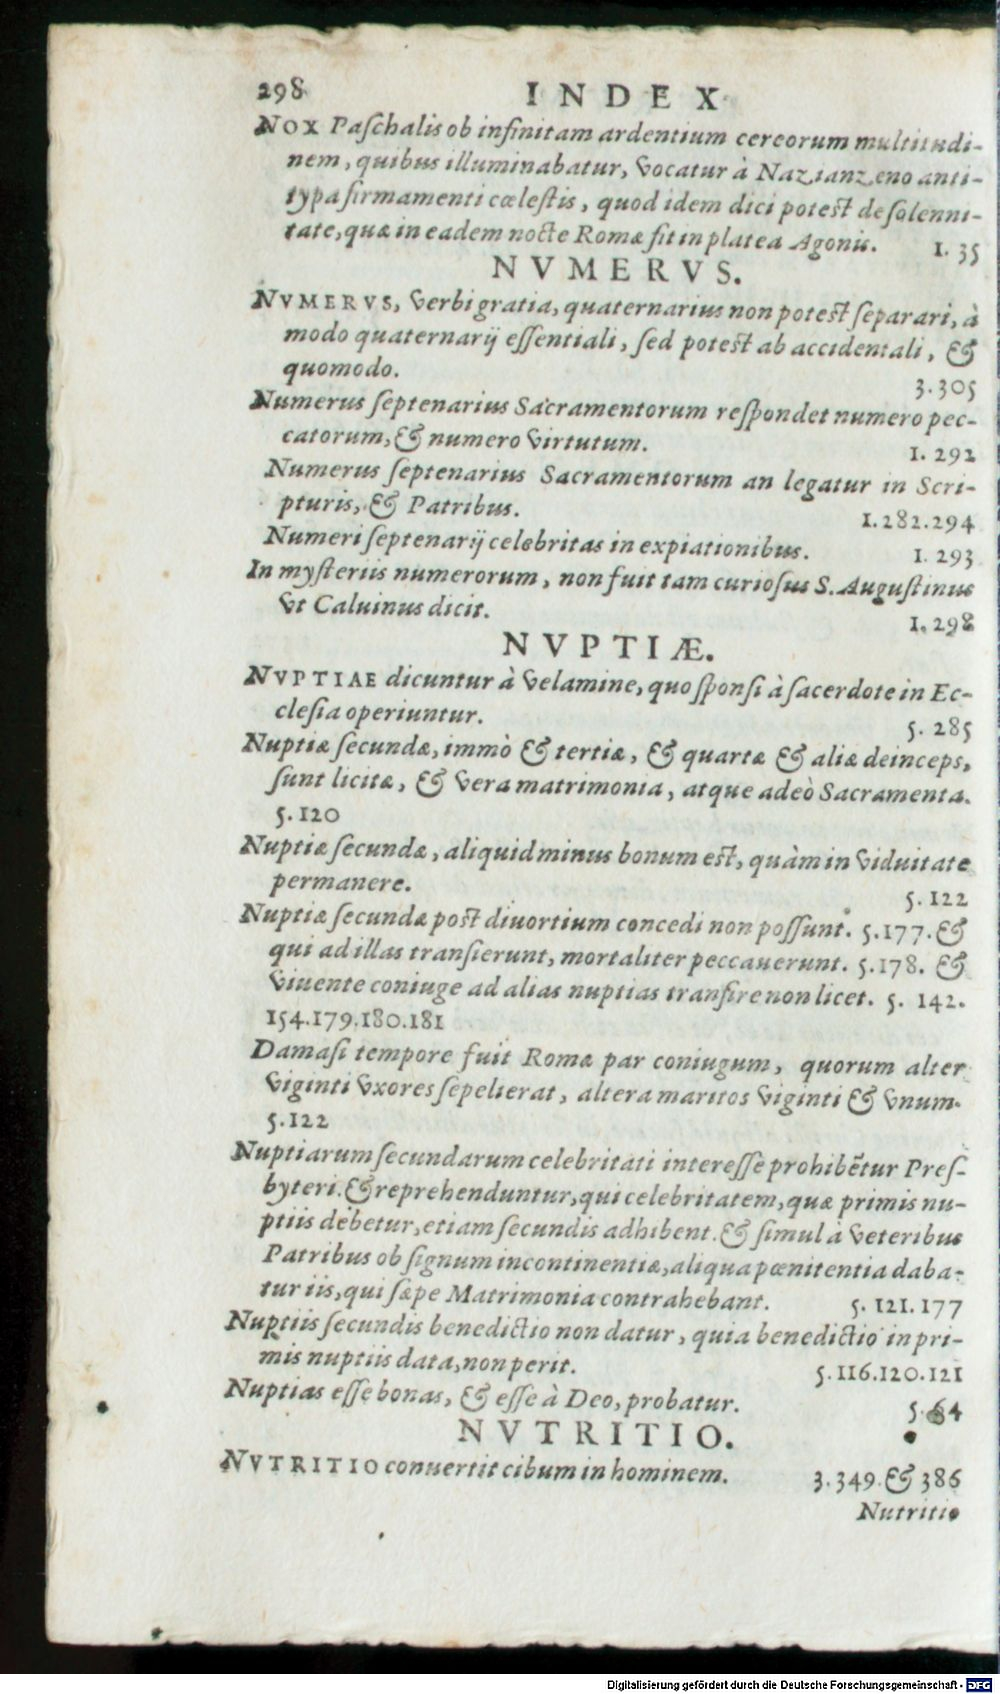 298 INDEX
NOX Paſchalis ob infinitam ardentium cereorum multitudi-
nem, quibus illuminabatur, vocatur à Nazianzeno anti-
typa firmamenti cœleſtis, quod idem dici poteſt de ſolenni-
tate, quæ in eadem nocte Romæ fit in platea Agonis. 1. 35
NVMERVS.
NVMERVS, verbi gratia, quaternarius non poteſt ſeparari, à
modo quaternarij eſſentiali, ſed poteſt ab accidentali, &
quomodo. 3.305
Numerus ſeptenarius Sacramentorum reſpondet numero pec-
catorum, & numero virtutum. 1. 292
Numerus ſeptenarius Sacramentorum an legatur in Scri-
pturis, & Patribus. 1.282.294
Numeri ſeptenarij celebritas in expiationibus. 1. 293
In myſteriis numerorum, non fuit tam curioſus S. Auguſtinus
vt Caluinus dicit. 1. 298
NVPTIÆ.
NVPTIAE dicuntur à velamine, quo ſponſi à ſacerdote in Ec-
cleſia operiuntur. 5. 285
Nuptiæ ſecundæ, immò & tertiæ, & quartæ & aliæ deinceps,
ſunt licitæ, & vera matrimonia, atque adeò Sacramenta.
5.120
Nuptiæ ſecundæ, aliquid minus bonum eſt, quàm in viduitate
permanere. 5.122
Nuptiæ ſecundæ poſt diuortium concedi non poſſunt. 5.177. &
qui ad illas tranſierunt, mortaliter peccauerunt. 5.178. &
viuente coniuge ad alias nuptias tranſire non licet. 5. 142.
154.179.180.181
Damaſi tempore fuit Romæ par coniugum, quorum alter
viginti vxores ſepelierat, altera maritos viginti & vnum.
5.122
Nuptiarum ſecundarum celebritati intereſſe prohibētur Preſ-
byteri. & reprehenduntur, qui celebritatem, quæ primis nu-
ptiis debetur, etiam ſecundis adhibent. & ſimul à veteribus
Patribus ob ſignum incontinentiæ, aliqua pœnitentia daba-
tur iis, qui ſæpe Matrimonia contrahebant. 5. 121.177
Nuptiis ſecundis benedictio non datur, quia benedictio in pri-
mis nuptiis data, non perit. 5.116.120.121
Nuptias eſſe bonas, & eſſe à Deo, probatur. 5.64
NVTRITIO.
NVTRITIO conuertit cibum in hominem. 3.349. & 386
Nutritio
Digitalisierung gefördert durch die Deutsche Forschungsgemeinschaft - DFG